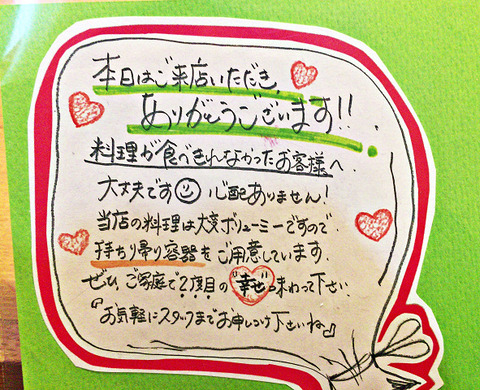 本日はご来店いただき
ありがとうございます!!
料理が食べきれなかったお客様へ
大丈夫です 心配ありません!
当店の料理は大変ボリューミーですので、
持ち帰り容器をご用意しています.
ぜひ、ご家庭で2度目の"幸せ"味わって下さい.
『お気軽にスタッフまでお申しつけ下さいね』